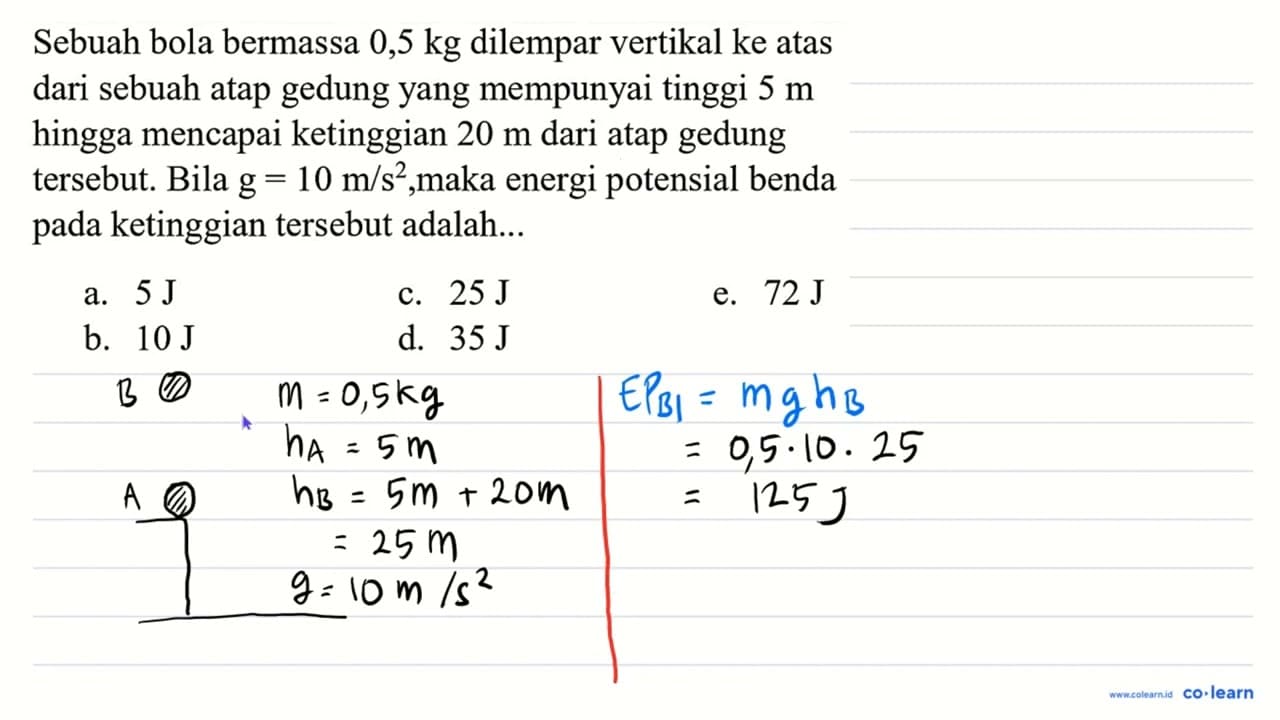 Sebuah bola bermassa 0,5 kg dilempar vertikal ke atas
dari sebuah atap gedung yang mempunyai tinggi 5 m
hingga mencapai ketinggian 20 m dari atap gedung
tersebut. Bila g = 10 m/s²,maka energi potensial benda
pada ketinggian tersebut adalah...
a. 5 J
c. 25 J
e. 72 J
b. 10 J
d. 35 J
B
A
m = 0,5 kg
hA = 5 m
hB = 5m + 20m
= 25 m
g = 10 m/s²
EPB1 = m g hB
= 0,5 · 10 · 25
= 125 J
www.colearn.id co·learn